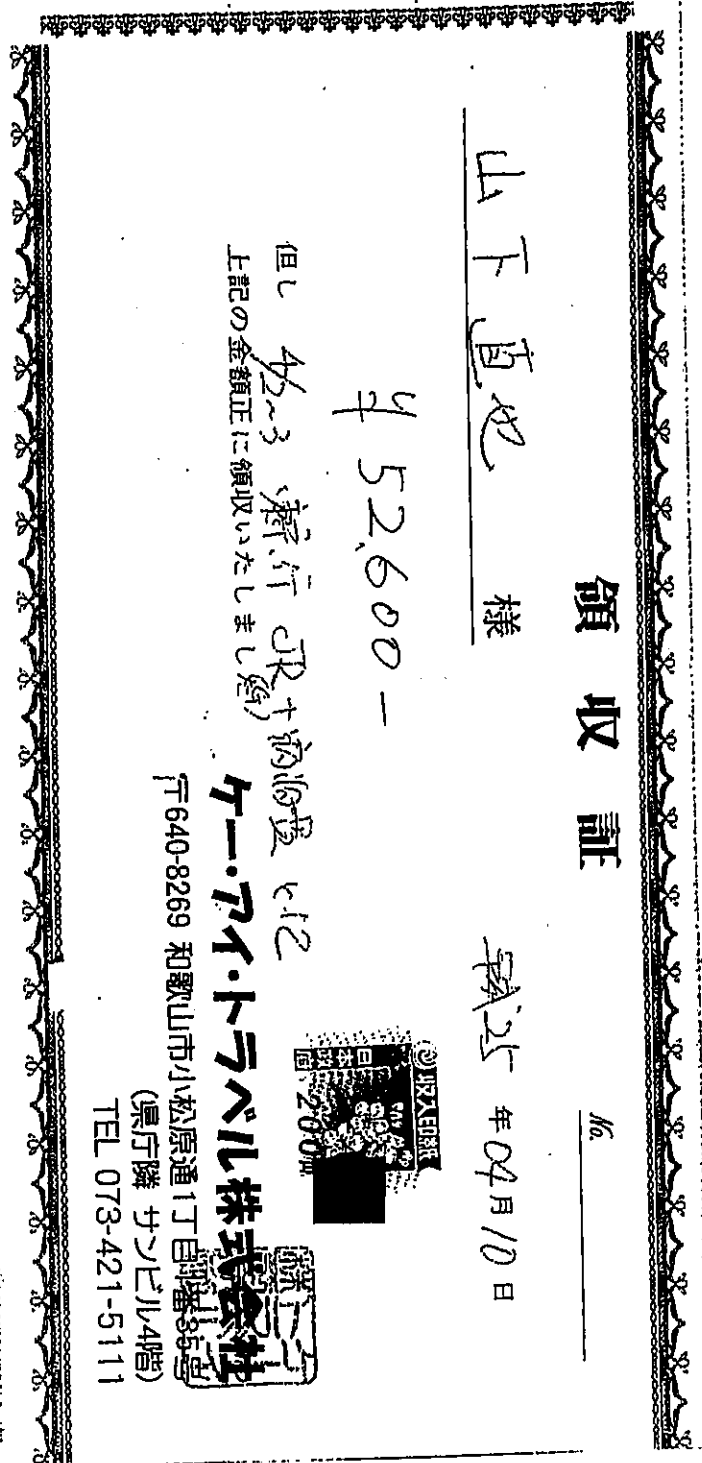 領収証
No.
平成25年04月10日
山下直也 様
¥52,600-
但し 4/2~3 JR+宿泊費
上記の金額正に領収いたしました
収入印紙
日本政府
200円
ケー・アイ・トラベル株式会社
〒640-8269 和歌山市小松原通1丁目
(県庁隣 サンビル4階)
TEL 073-421-5111